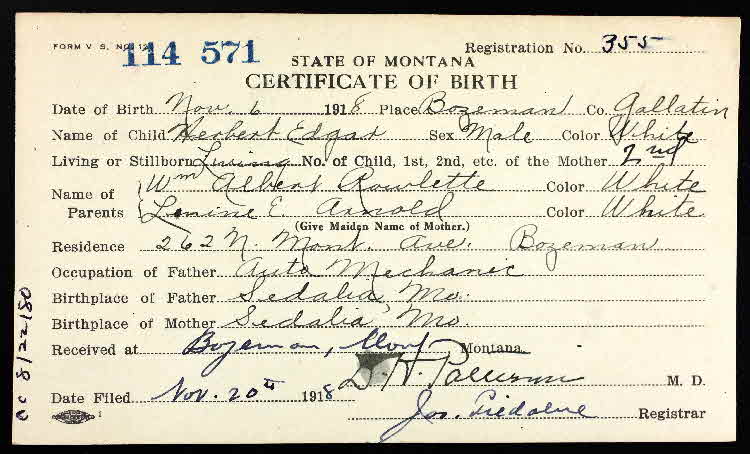 FORM V. S. NO. 12
114 571
Registration No. 355
STATE OF MONTANA
CERTIFICATE OF BIRTH
Date of Birth Nov. 6 1918 Place Bozeman Co. Gallatin
Name of Child Herbert Edgar Sex Male Color White
Living or Stillborn Living No. of Child, 1st, 2nd, etc. of the Mother 2nd
Name of Parents
Wm Albert Rowlette Color White
E. Arnold Color White
(Give Maiden Name of Mother.)
Residence 262 N. Mont. Ave. Bozeman
Occupation of Father Auto Mechanic
Birthplace of Father Sedalia, Mo.
Birthplace of Mother Sedalia, Mo.
Received at Bozeman, Mont Montana
M. D.
Date Filed Nov. 20th 1918
Jos. Registrar
CC 8/22/80